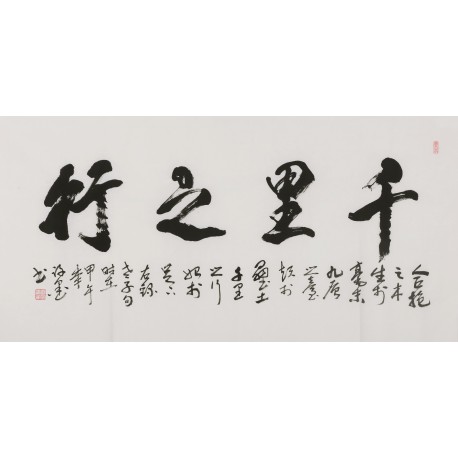 千里之行
合抱
之木
生於
毫末
九層
之臺
起於
壘土
千里
之行
始於
足下
右錄
老子句
時在
甲午
书